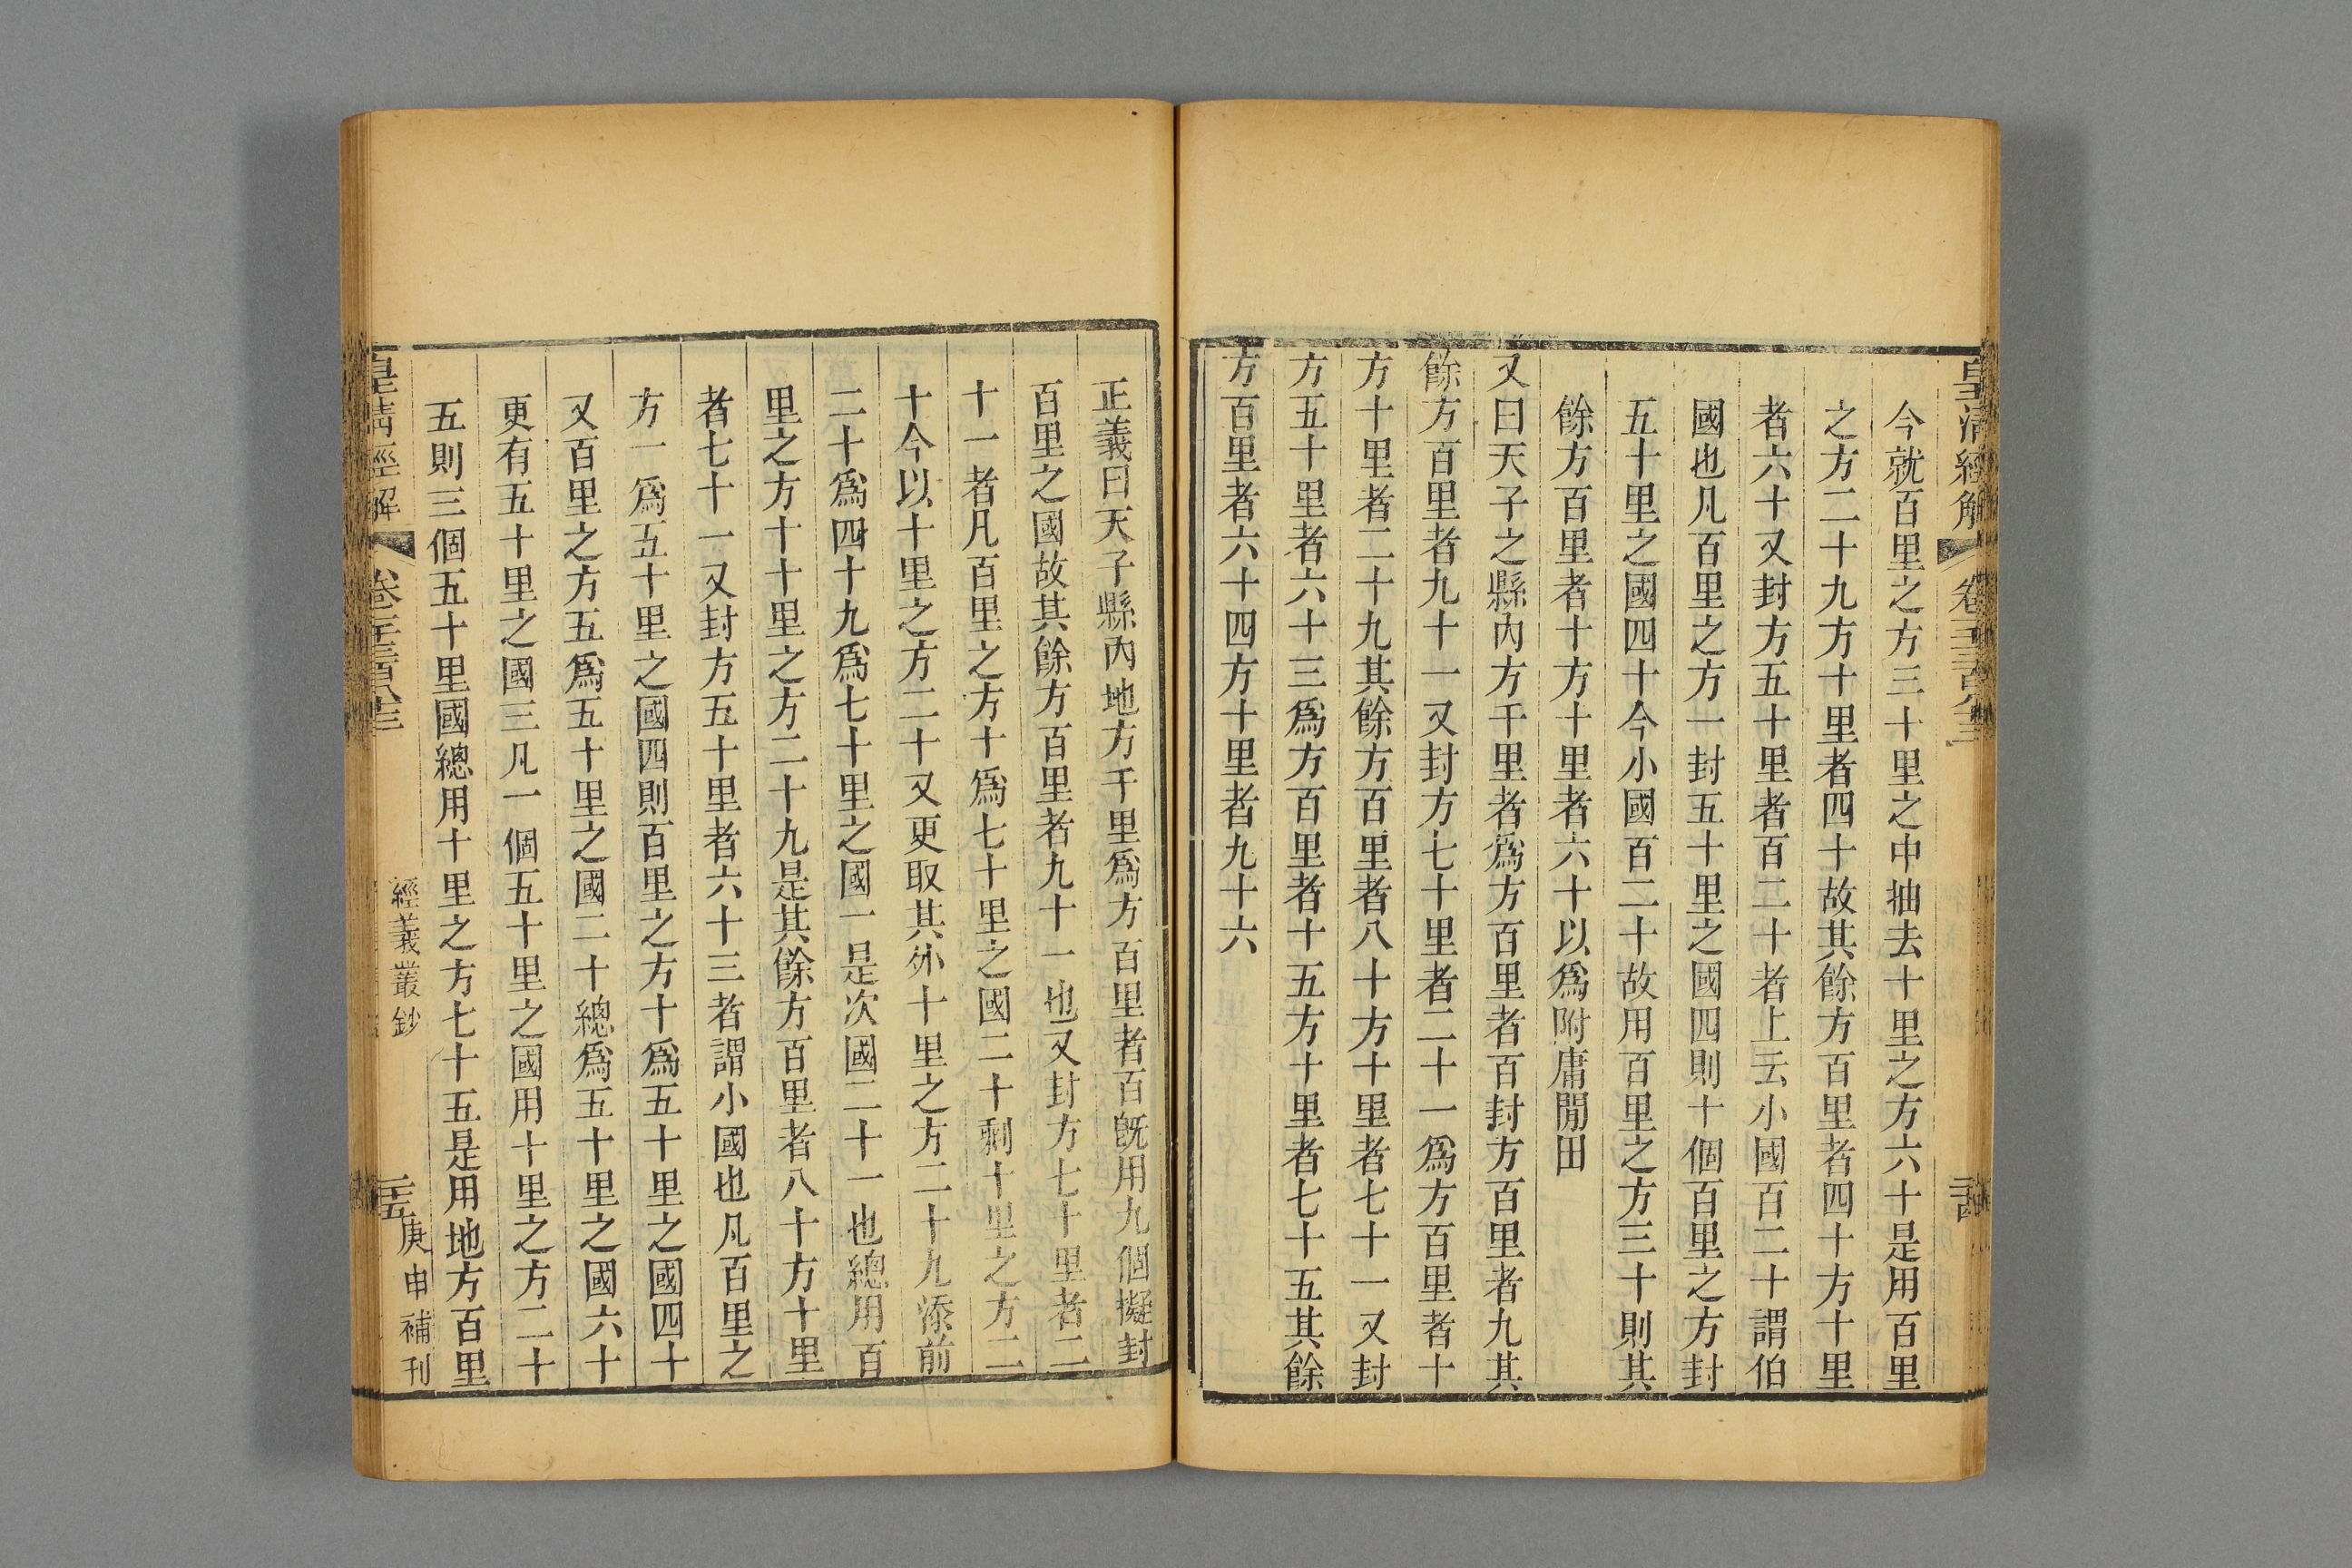 皇清經解
今就百里之方三十里之中抽去十里之方六十是用百里
之方二十九方十里者四十故其餘方百里者四十方十里
者六十又封方五十里者百二十者上云小國百二十謂伯
國也凡百里之方一封五十里之國四則十個百里之方封
五十里之國四十今小國百二十故用百里之方三十則其
餘方百里者十方十里者六十以爲附庸閒田
又曰天子之縣內方千里者爲方百里者百封方百里者九其
餘方百里者九十一又封方七十里者二十一爲方百里者十
方十里者二十九其餘方百里者八十方十里者七十一又封
方五十里者六十三爲方百里者十五方十里者七十五其餘
方百里者六十四方十里者九十六
正義曰天子縣內地方千里爲方百里者百旣用九個擬封
百里之國故其餘方百里者九十一也又封方七十里者二
十一者凡百里之方十爲七十里之國二十剩十里之方二
十今以十里之方二十又更取其外十里之方二十九添前
二十爲四十九爲七十里之國一是次國二十一也總用百
里之方十十里之方二十九是其餘方百里者八十方十里
者七十一又封方五十里者六十三者謂小國也凡百里之
方一爲五十里之國四則百里之方十爲五十里之國四十
又百里之方五爲五十里之國二十總爲五十里之國六十
更有五十里之國三凡一個五十里之國用十里之方二十
五則三個五十里國總用十里之方七十五是用地方百里
皇清經解
經義叢鈔
庚申補刊